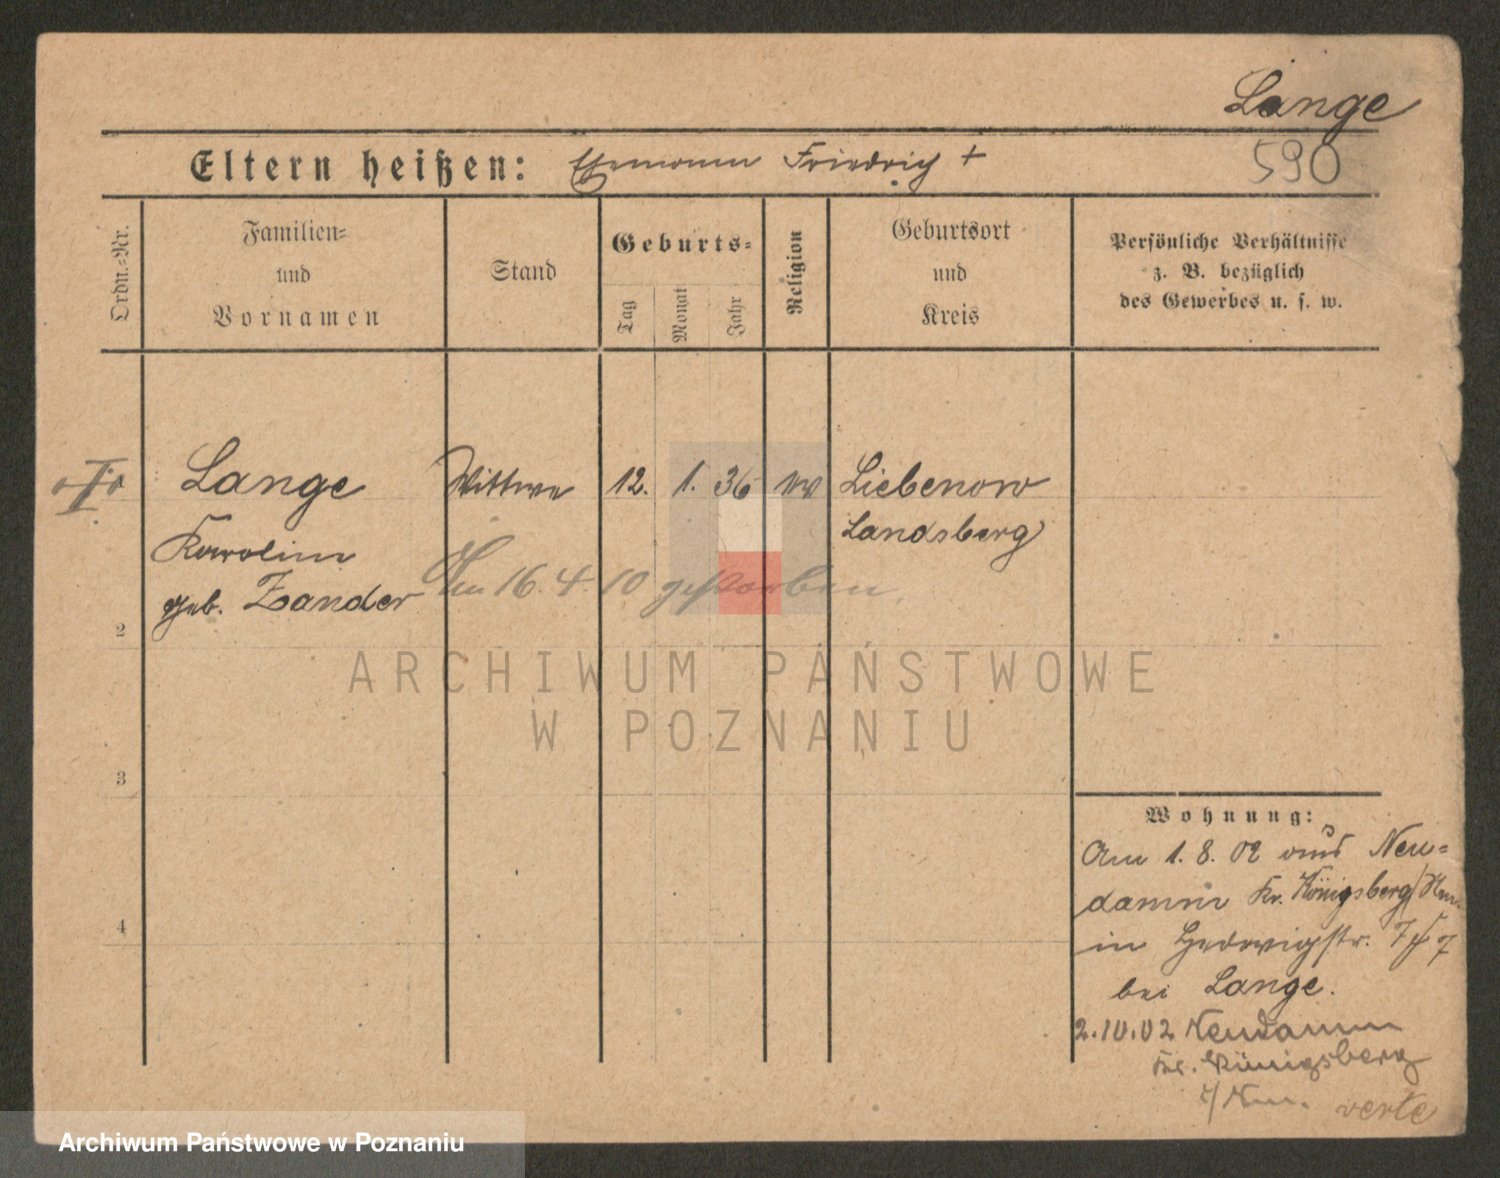 Lange
590
Eltern heißen: Ehemann Friedrich +
Ordn.-Nr.
Familien-
und
Vornamen
Stand
Geburts-
Tag
Monat
Jahr
Religion
Geburtsort
und
Kreis
Persönliche Verhältnisse
z. B. bezüglich
des Gewerbes u. s. w.
Lange Wittwe 12. 1. 36 Liebenow
Karoline Landsberg
geb. Zander
16. 4. 10 gestorben
2
3
4
ARCHIWUM PAŃSTWOWE
W POZNANIU
Wohnung:
Am 1. 8. 02 aus Neu-
damm Kr. Königsberg/Nm
in Hedwigstr.
bei Lange.
2.10.02 Neudamm
Kr. Königsberg
/Nm. verte
Archiwum Państwowe w Poznaniu